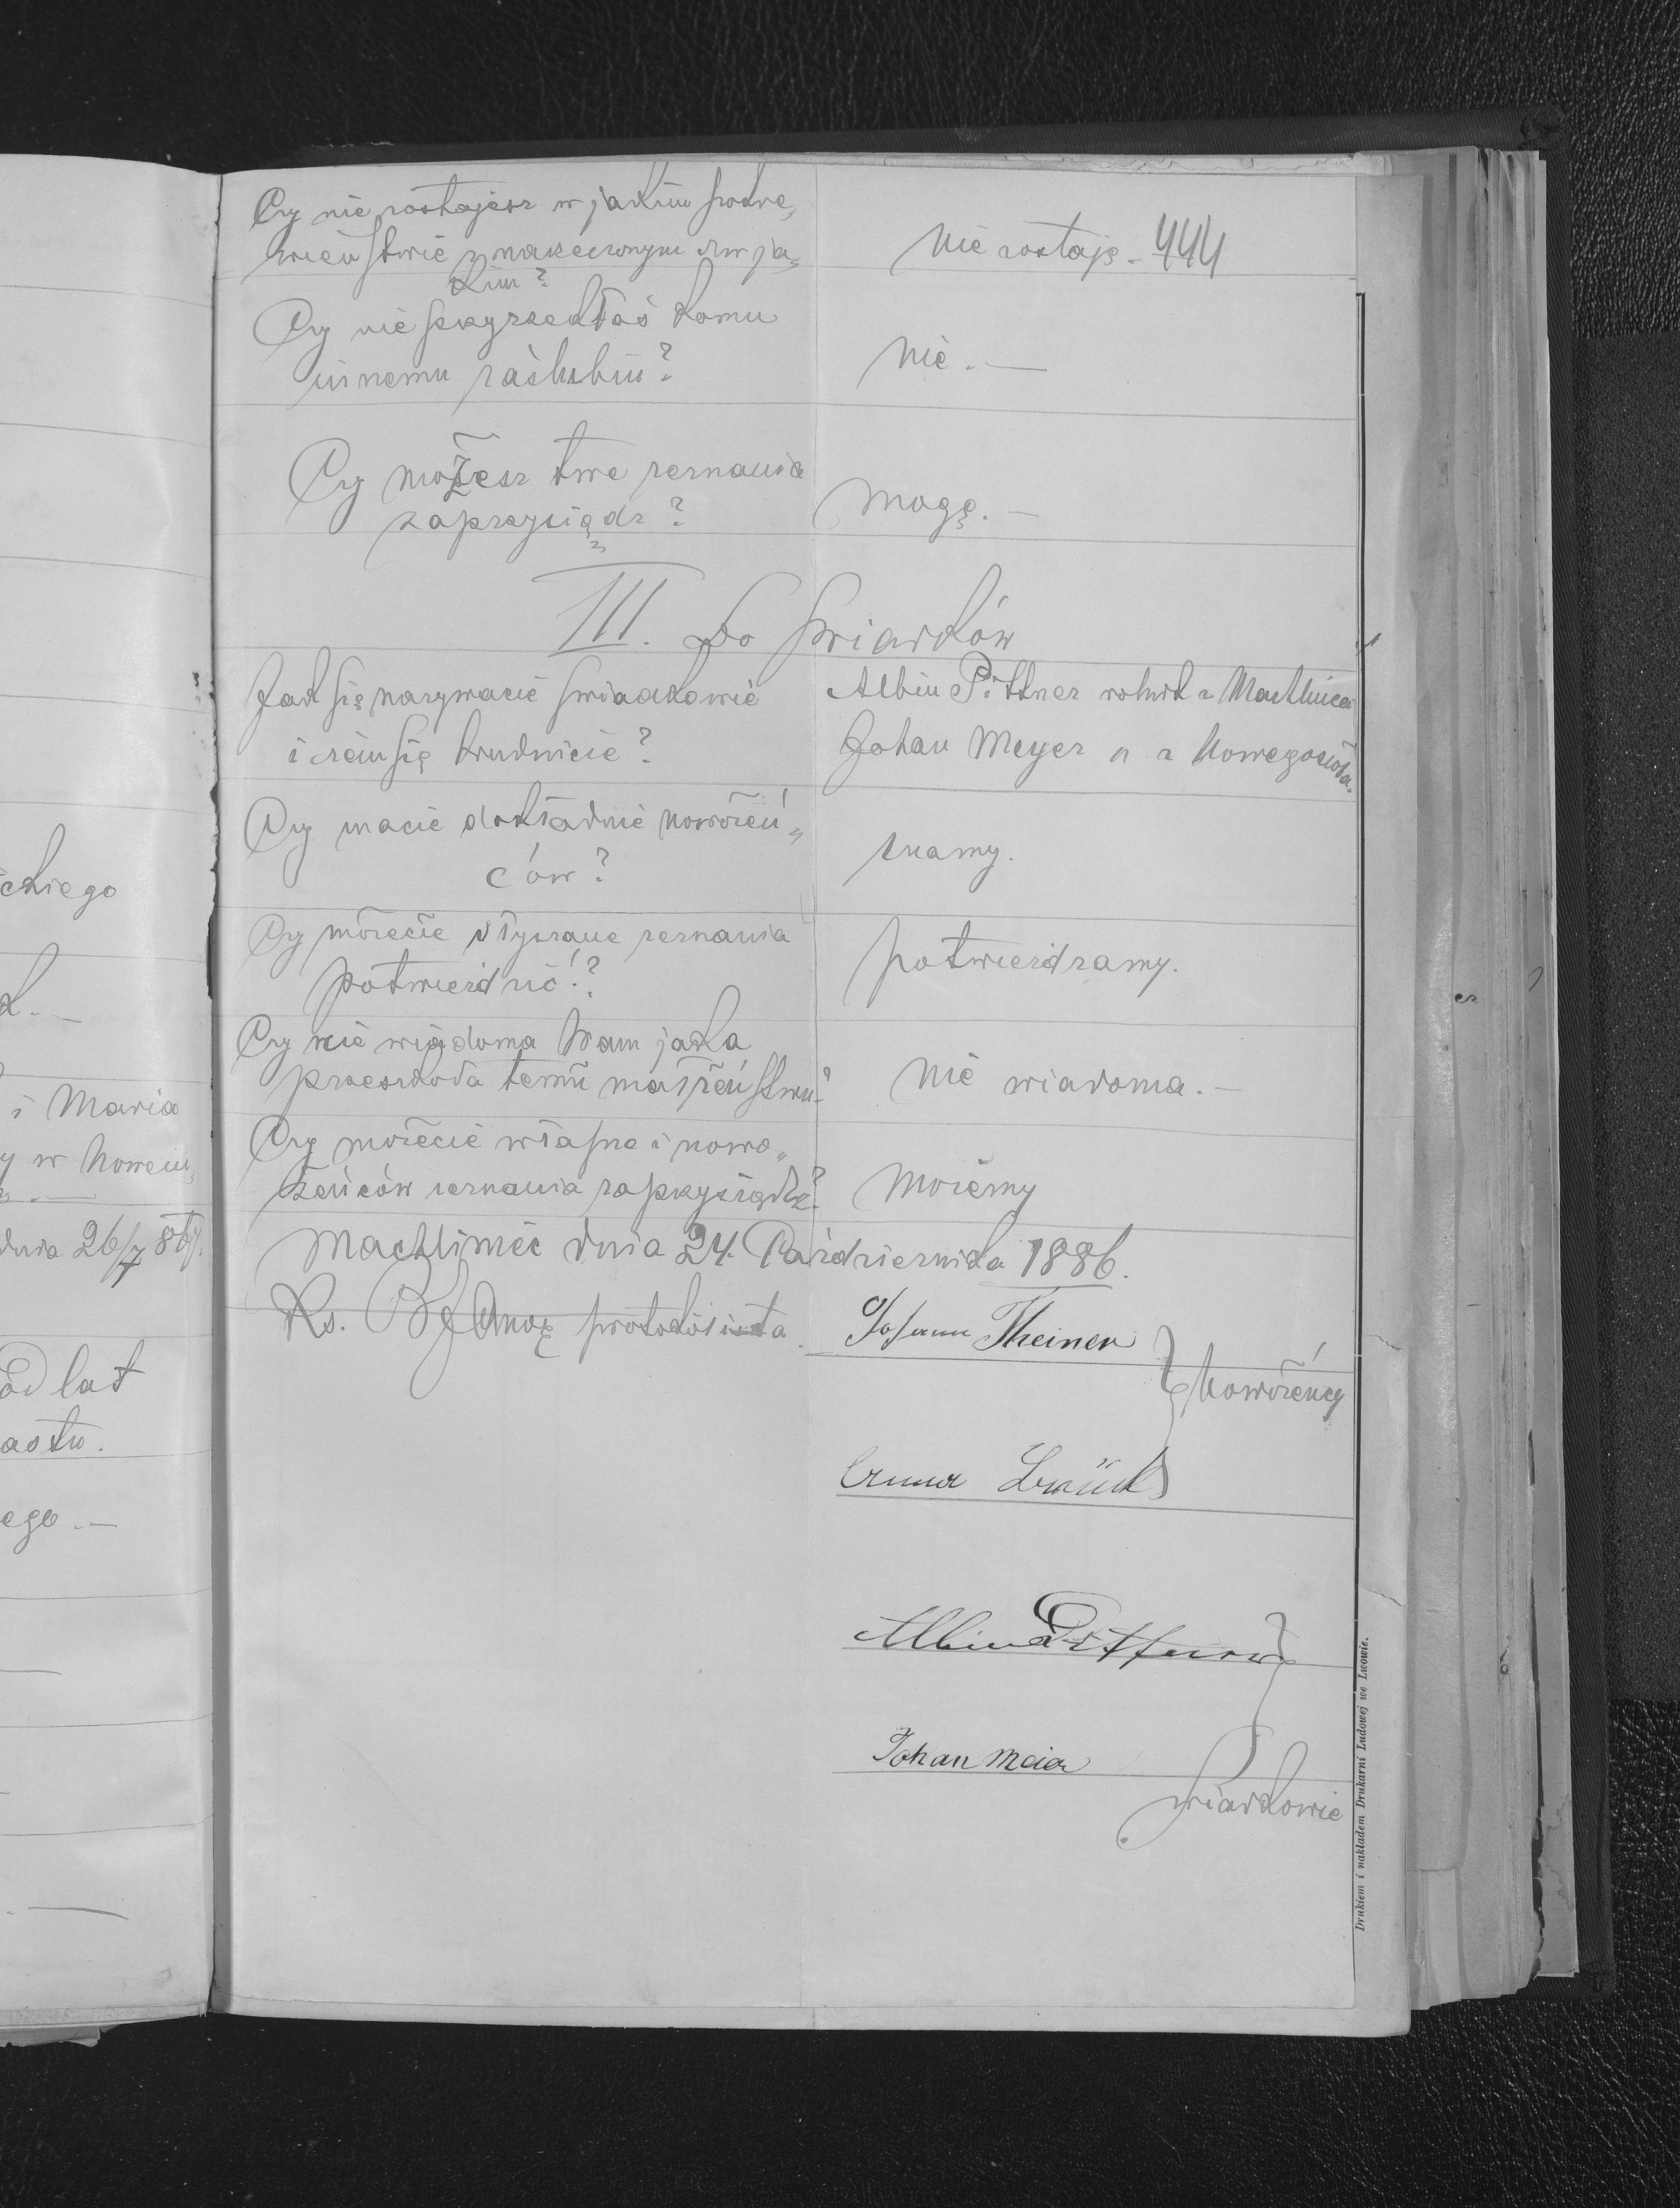 ickiego
k. —
i Maria
y w Nowem
dnia 26/7 867.
Od lat
astw.
ego. —
Czy nie zostajesz w jakim pokre„
wieństwie z narzeczonym i w ja„
kim?
nie zostaję. 444
Czy nie przyrzekłaś komu
innemu zaślubin?
nie. —
Czy możesz twe zeznania
zaprzysiądz?
mogę. —
III. Do świadków
Jak się nazywacie świadkowie
i czem się trudnicie?
Albin Pittner rolnik z Machlińca
Johan Meyer " z Nowegosioła.
Czy znacie dokładnie nowożeń„
ców?
znamy.
Czy możecie słyszane zeznania
potwierdzić?
potwierdzamy.
Czy nie wiadoma Wam jaka
przeszkoda temu małżeństwu?
nie wiadoma. —
Czy możecie własne i nowo„
żeńców zeznania zaprzysiądz?
możemy
Machliniec dnia 24. Października 1886.
Ks. protokolista.
Johann Theiner
Nowożeńcy
Anna
Albin Pittner
Johan Meier
świadkowie
Drukiem i nakładem Drukarni Ludowej we Lwowie.